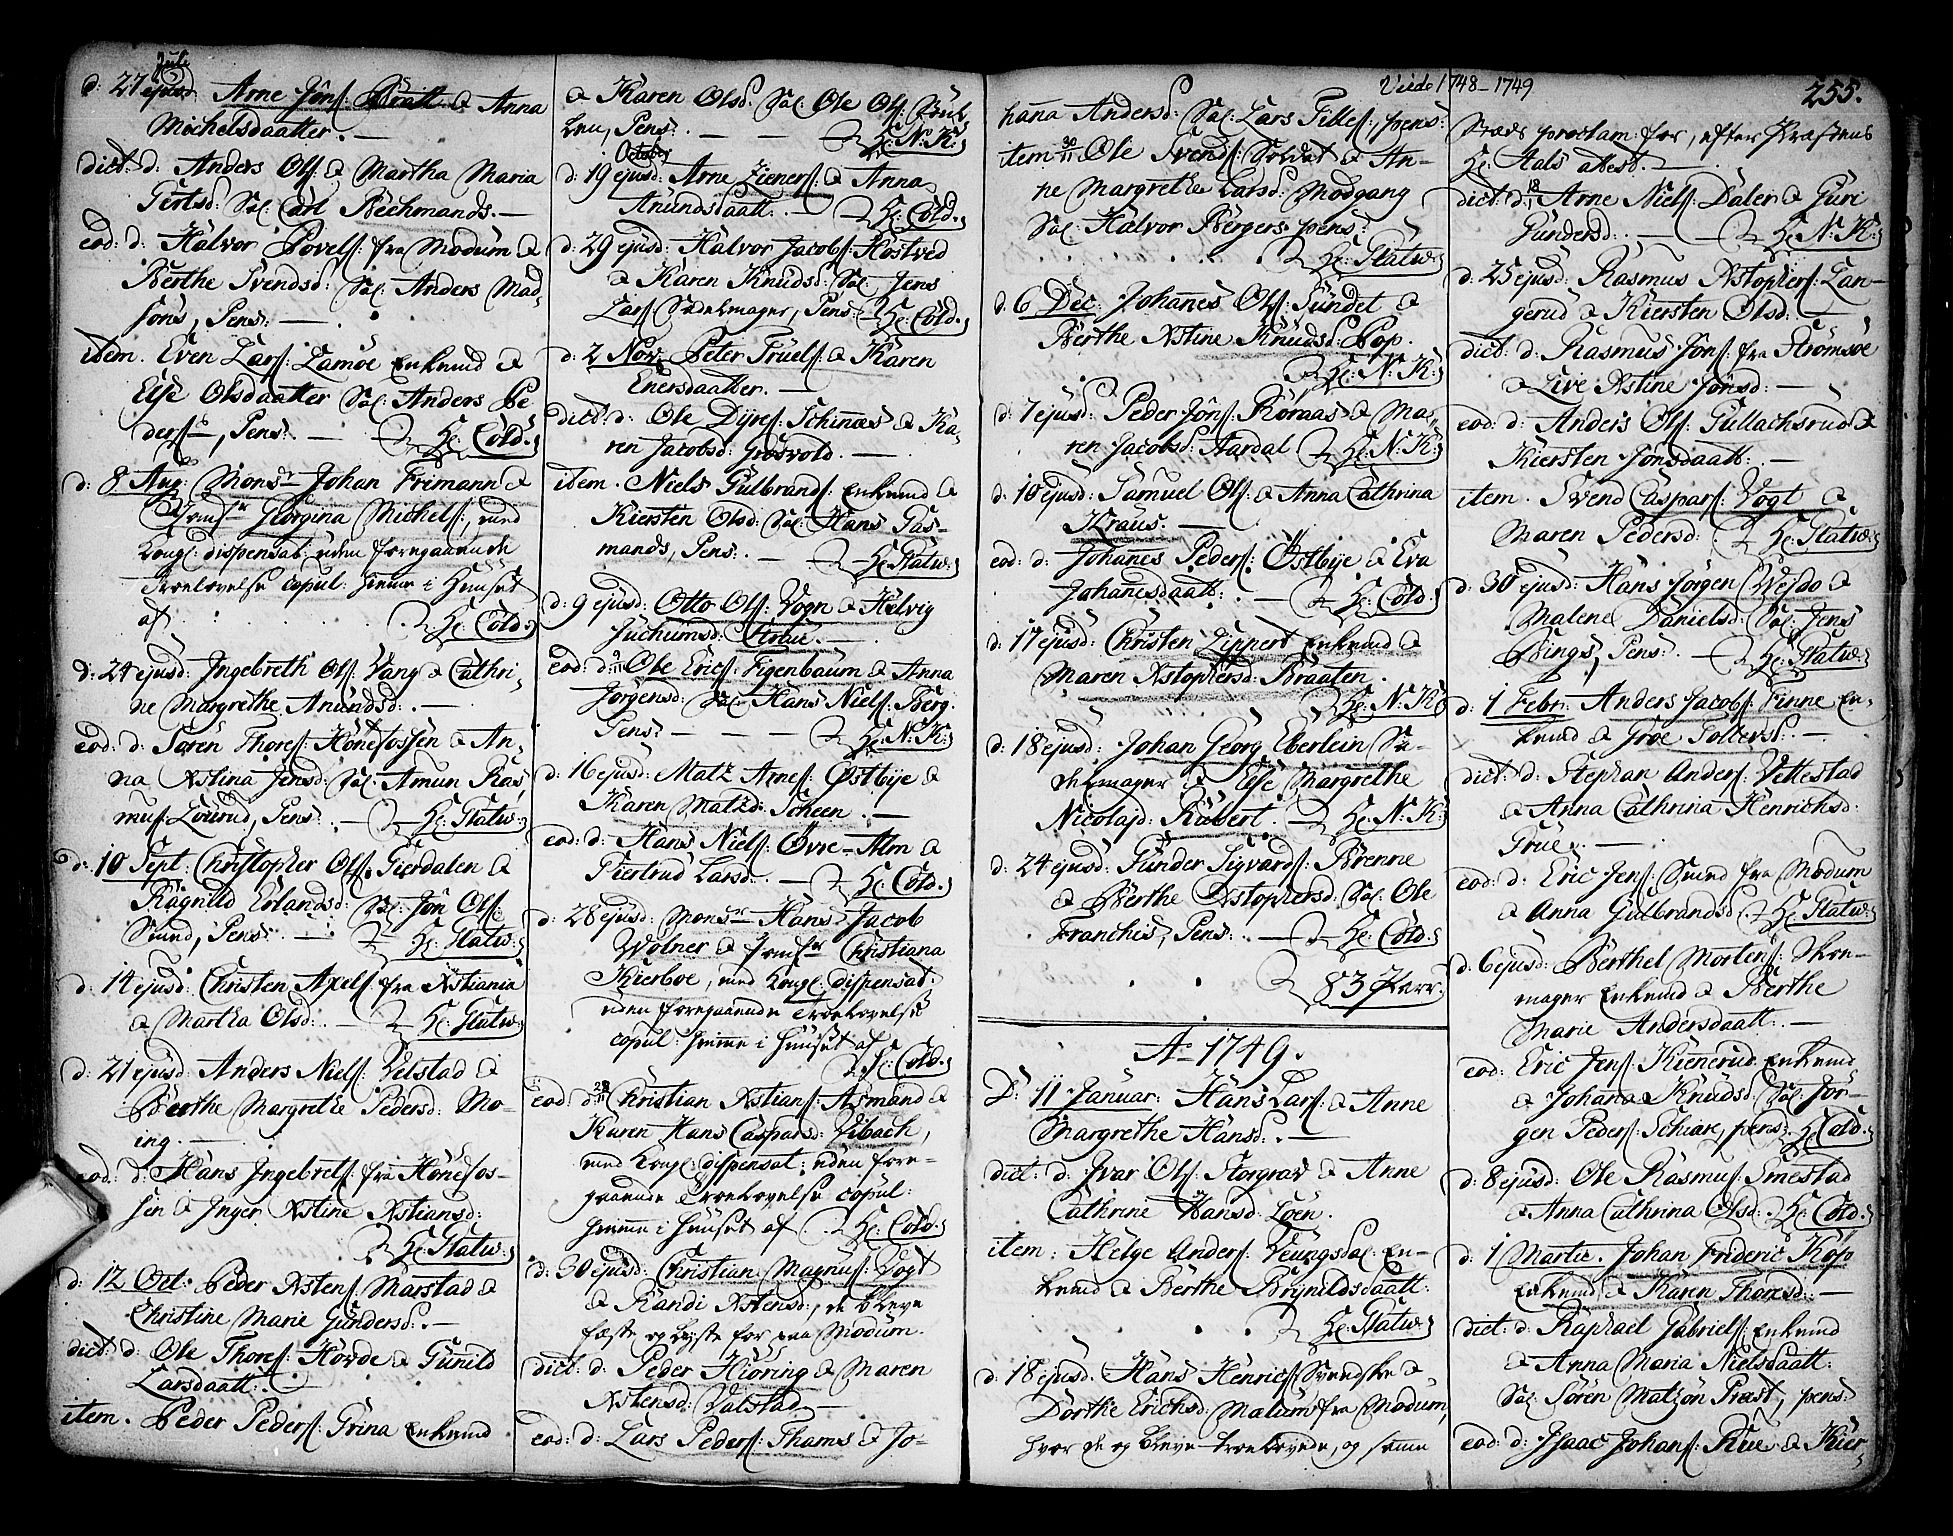 Juli
d: 27 ejusd. Arne Jöns: Bratt & Anna
Michelsdaatter. —
dict: d: Anders Ols: & Martha Maria
Gertsd: Sal: Carl Bechmands. —
eod: d: Halvor Povels: fra Modum &
Berthe Svendsd: Sal: Anders Mad-
söns, Pens: —
item. Even Lars: Lamöe Enkemd &
Else Olsdaatter Sal: Anders Pe-
ders:, Pens: — Hr: Cold.
d: 8 Aug: Monsr Johan Frimann &
Jomfr Georgina Michels:, med
Kongl: dispensat: uden foregaaende
Troelovelse copul: hieme i Huuset
af Hr: Cold.
d: 24 ejusd: Ingebreth Ols: Vang & Cathri-
ne Margrethe Anundsd: —
eod: d: Sören Thores: Hönefossen & An-
na Xstina Jensd: Sal: Amun Ras-
mus: Lourud, Pens: — Hr: Statw:
d: 10 Sept: Christopher Ols: Gierdalen &
Ragnild Erlandsd: Sal: Jön Ols:
Smed, Pens: — Hr: Statw:
d: 14 ejusd: Christen Axels: fra Xstiania
& Martha Olsd: — Hr: Statw:
d: 21 ejusd: Anders Niels: Velstad &
Berthe Margrethe Pedersd: Mo-
ing. —
eod: d: Hans Ingebrets: fra Hönefos-
sen & Inger Xstine Xstiansd:
Hr: Statw:
d: 12 Oct: Peder Xstens: Marstad &
Christine Marie Gundersd: —
dict: d: Ole Thores: Hovde & Gunild
Larsdaatt: —
item. Peder Peders: Grina Enkemd
& Karen Olsd: Sal: Ole Ols:
Pens: — Hr: N: K:
October
d: 19 ejusd: Arne Zieners: & Anna
Anundsdaatt: — Hr: Cold.
d: 29 ejusd: Halvor Jacobs: Hostved
& Karen Knudsd: Sal: Jens
Lars: Sadelmager, Pens: Hr: Cold.
d: 2 Nov: Peter Truels: & Karen
Enersdaatter. —
dict: d: Ole Dyres: Schinæs & Ka-
ren Jacobsd: Grosvold. —
item. Niels Gulbrands: Enkemd &
Kiersten Olsd: Sal: Hans Gas-
mands, Pens: — Hr: Statw:
d: 9 ejusd: Otto Ols: Vogn & Helvig
Juchumsd: —
eod: d: Ole Erics: Figenbaum & Anna
Jörgensd: Sal: Hans Niels: Berg.
Pens: — Hr: N: K:
d: 16 ejusd: Matz Arnes: Östbye &
Karen Matzd: Scheen. —
eod: d: Hans Niels: Övre-Alm &
Giertrud Larsd: — Hr: Cold.
d: 28 ejusd: Monsr Hans Jacob
Wölner & Jomfr Christiana
Kierboe, med Kongl: dispensat:
uden foregaaende Troelovelse
copul: hieme i Huuset af
Hr: Cold.
eod: d: Christian Xstians: Asmand &
Karen Hans Caspersd: Vibach,
med Kongl: dispensat: uden fore-
gaaende Troelovelse copul:
hieme i Huuset af Hr: Cold.
d: 30 ejusd: Christian Magnus: Vogt
& Randi Xstensd:, de bleve
fæste og lyste for paa Modum.
dict: d: Peder Hiöring & Maren
Xstensd: Valstad. —
eod: d: Lars Peders: Thams & Jo-
Viede 1748–1749
hanna Andersd: Sal: Lars Tilles: pens:
item Ole Svends: Soldat & An-
ne Margrethe Larsd: Modgang
Sal: Halvor Bergers pens:
Hr: Statw:
d: 6 Dec: Johannes Ols: Sundet &
Berthe Xstine Knudsd: Pop.
Hr: N: K:
d: 7 ejusd: Peder Jöns: Röraas & Ma-
ren Jacobsd: Aardal Hr: N: K:
d: 10 ejusd: Samuel Ols: & Anna Cathrina
Kraus. —
eod: d: Johanes Peders: Östbye & Eva
Johanesdaatt: — Hr: Cold.
d: 17 ejusd: Christen Zippert Enkemd &
Maren Xstophersd: Braaten.
Hr: N: K:
d: 18 ejusd: Johan Georg Eberlein
& Else Margrethe
Nicolajd: Rabert. — Hr: N: K:
d: 24 ejusd: Gunder Sigvards: Brenne
& Berthe Xstophersd: Sal: Ole
Franches, Pens: — Hr: Cold.
83 Parr.
Ao 1749.
D: 11 Januar: Hans Lars: & Anne
Margrethe Hansd: —
dict: d: Ivar Ols: Storgrav & Anne
Cathrine Hansd: Loen.
item: Helge Anders: Veungsdal En-
kemd & Berthe Brynildsdaatt:
Hr: Statw:
d: 18 ejusd: Hans Henrics: Svendske &
Dorthe Erichsd: Malum fra Modum,
hvor de og bleve troelovede, og samme
255.
Stæds proclam: for, efter Præstens
Hr: Aals attest. —
dict: d: Arne Niels: Dalen & Guri
Gundersd: — Hr: N: K:
d: 25 ejusd: Rasmus Xstophers: Lan-
gerud & Kiersten Olsd: —
dict: d: Rasmus Jöns: fra Strömsöe
& Live Xstine Jönsd: —
eod: d: Anders Ols: Gullachsrud &
Kiersten Jonsdaatt: —
item. Svend Caspers: Vogt &
Maren Pedersd: Hr: Statw:
d: 30 ejusd: Hans Jörgen &
Malene Danielsd: Sal: Jens
Bings, Pens: — Hr: Statw:
d: 1 Febr: Anders Jacobs: Finne En-
kemd & Groe Tollevs: —
dict: d: Stephan Anders: Vettestad
& Anna Cathrina Henrichsd:
True. —
eod: d: Eric Jens: Smed fra Modum
& Anna Gulbrandsd: Hr: Statw:
d: 6 ejusd: Berthel Mortens: Skoe-
mager Enkemd & Berthe
Marie Andersdaatt: —
eod: Eric Jens: Kienerud Enkemd
& Johana Knudsd: Sal: Jör-
gen Peders: Schiare, pens: Hr: Cold.
d: 8 ejusd: Ole Rasmus: Smestad
& Anna Cathrina Olsd: Hr: Cold.
d: 1 Martii. Johan Frideric Kopp
Enkemd & Karen Thoresd: —
dict: d: Raphael Gabriels: Enkemd
& Anna Maria Nielsdaatt:
Sal: Sören Matzön Præst, pens:
eod: d: Isaac Johans: Rue & Kier-